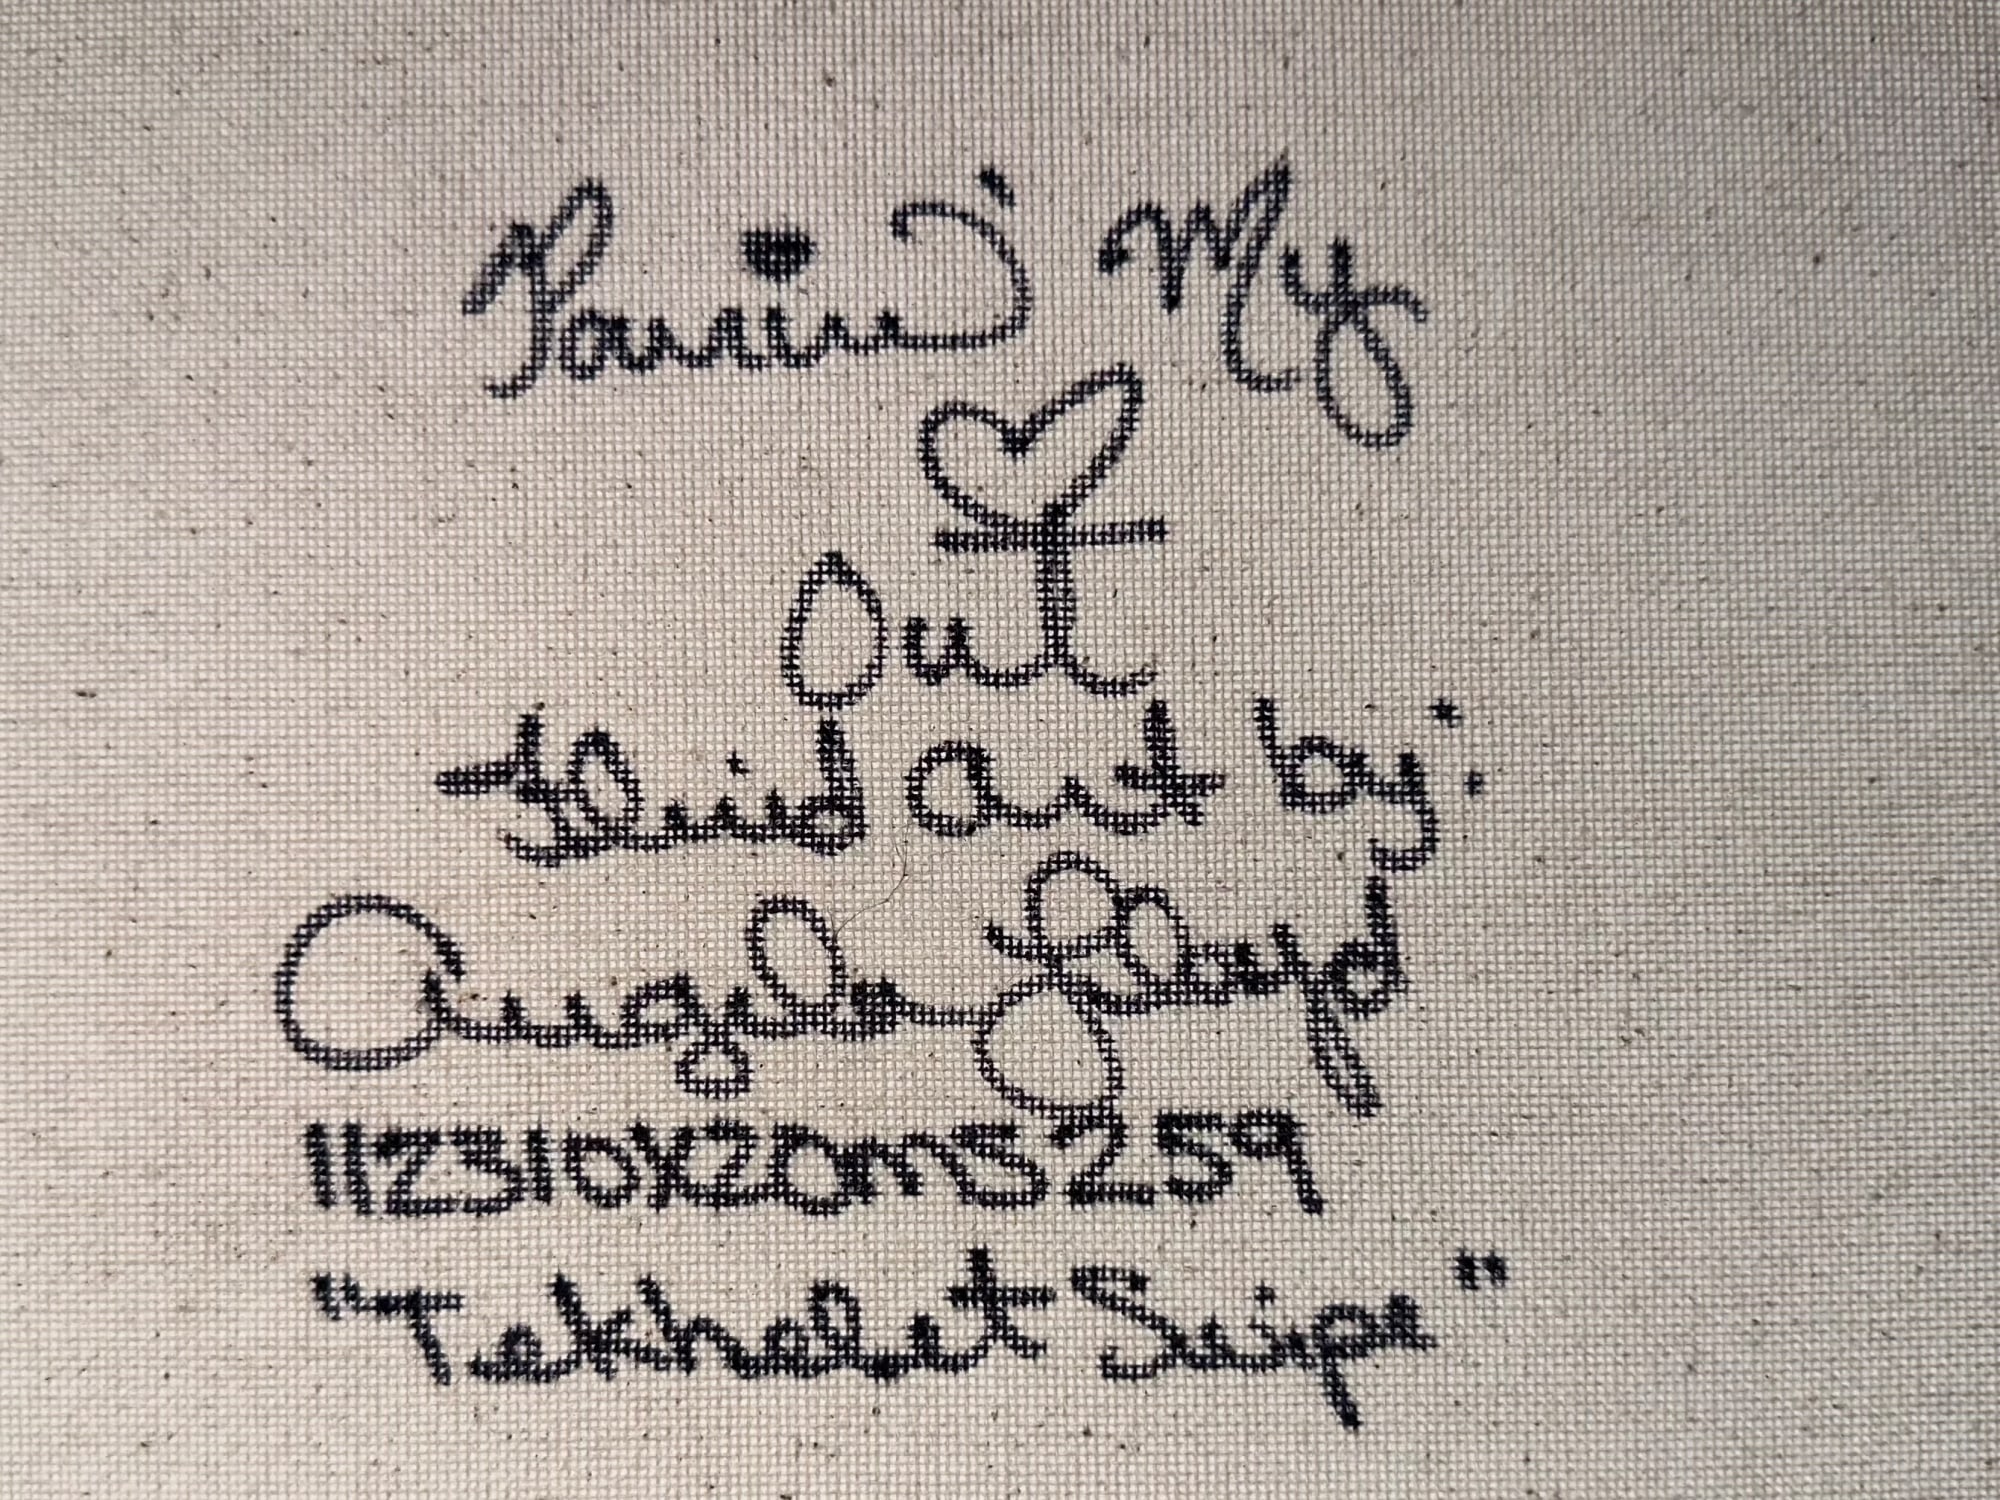 Pourin' My
♡
Out
fluid art by:
Angela Floyd
112310YZOMS259
"Tekhelet Stripe"